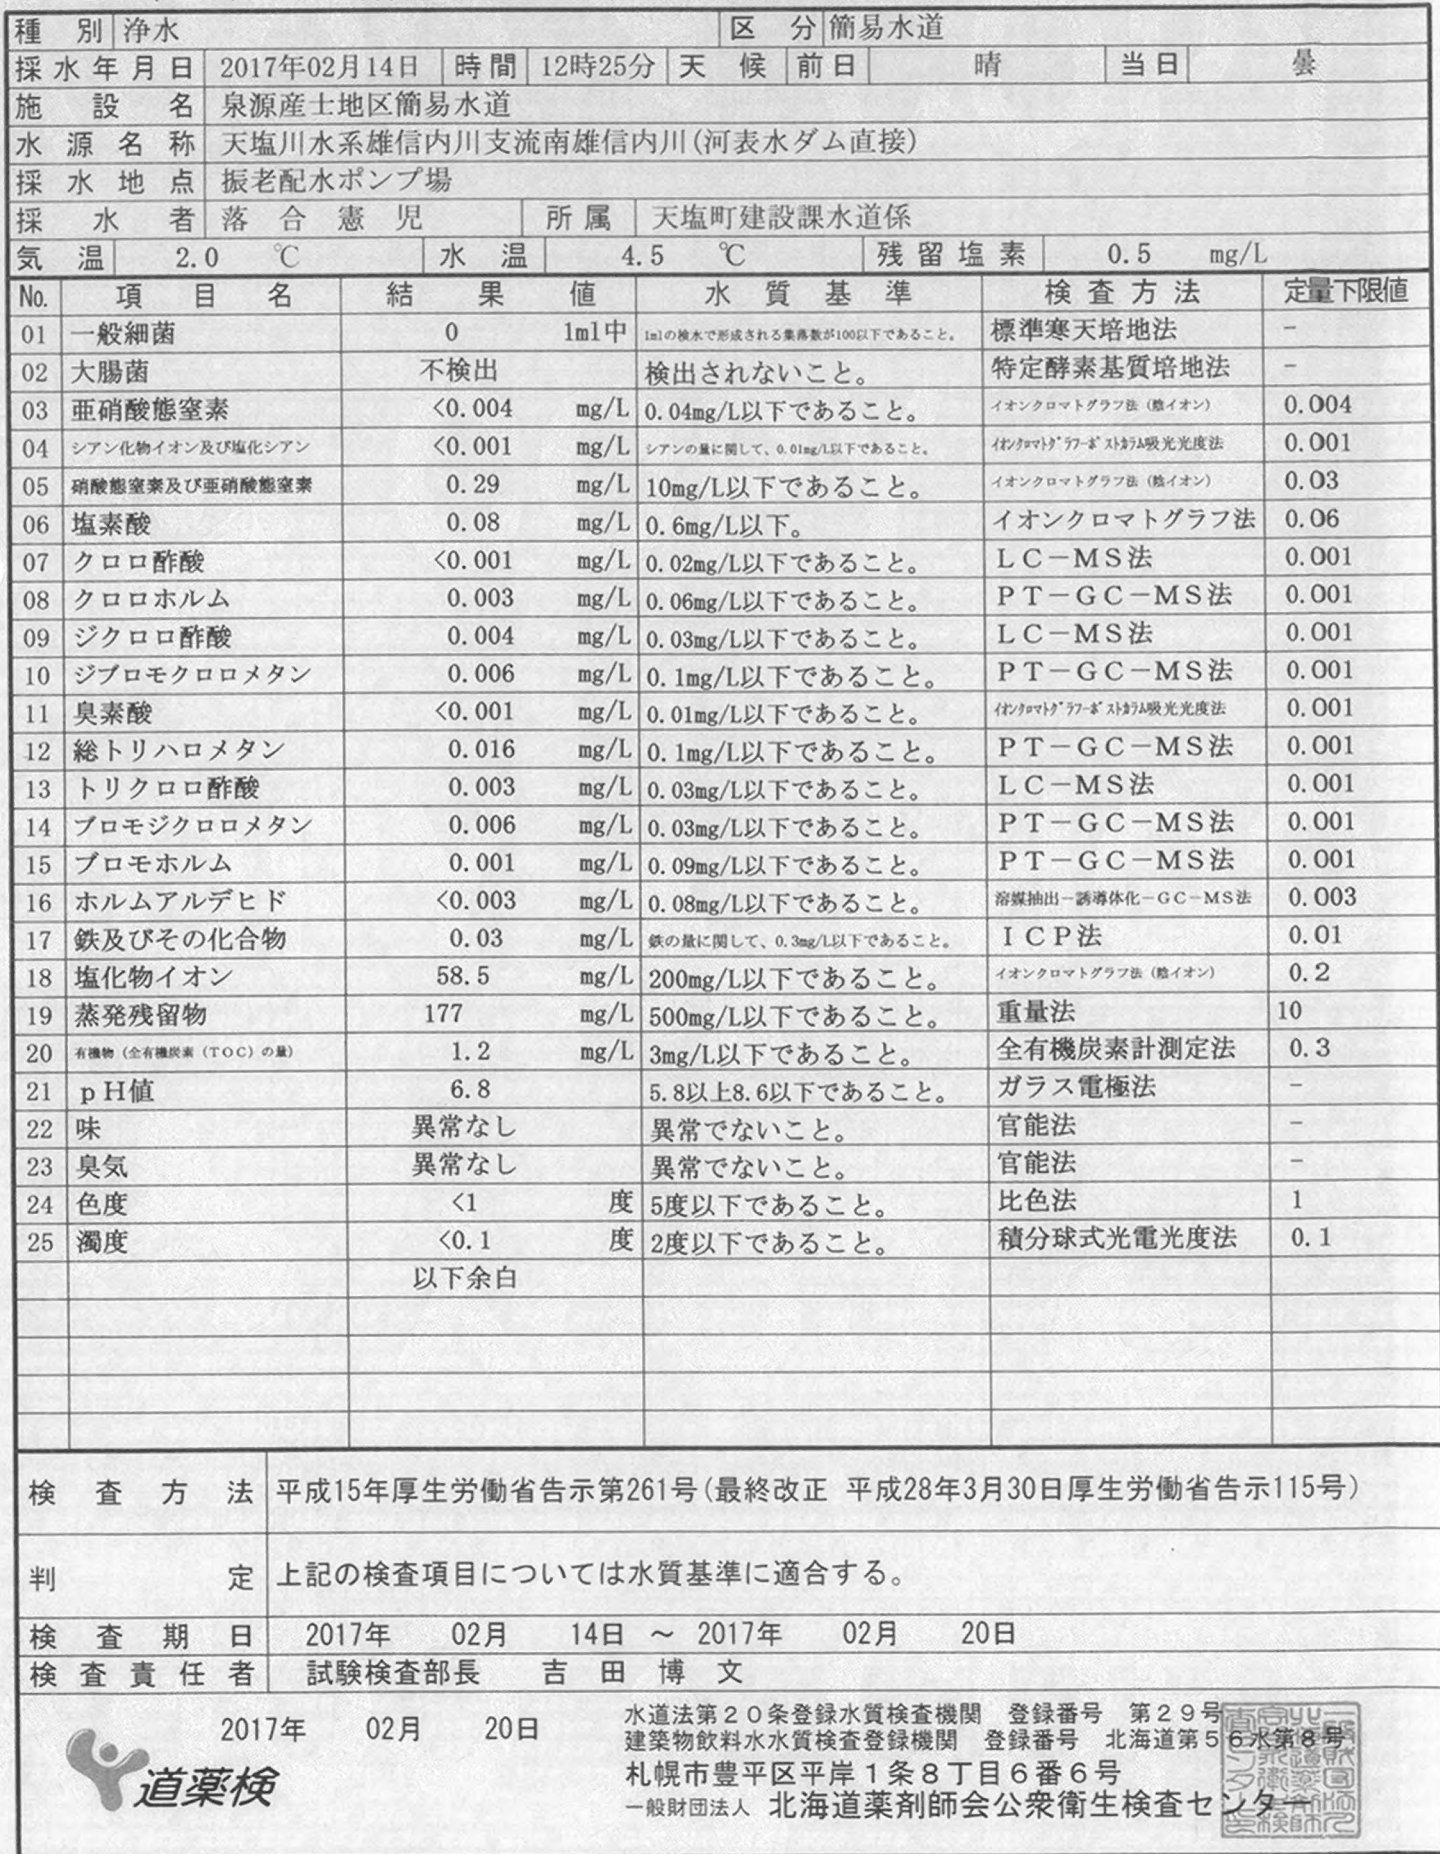 種別 浄水 区分 簡易水道
採水年月日 2017年02月14日 時間 12時25分 天候 前日 晴 当日 曇
施設名 泉源産士地区簡易水道
水源名称 天塩川水系雄信内川支流南雄信内川(河表水ダム直接)
採水地点 振老配水ポンプ場
採水者 落合憲児 所属 天塩町建設課水道係
気温 2.0 ℃ 水温 4.5 ℃ 残留塩素 0.5 mg/L
No. 項目名 結果値 水質基準 検査方法 定量下限値
01 一般細菌 0 1ml中 1mlの検水で形成される集落数が100以下であること。 標準寒天培地法 -
02 大腸菌 不検出 検出されないこと。 特定酵素基質培地法 -
03 亜硝酸態窒素 <0.004 mg/L 0.04mg/L以下であること。 イオンクロマトグラフ法（陰イオン） 0.004
04 シアン化物イオン及び塩化シアン <0.001 mg/L シアンの量に関して、0.01mg/L以下であること。 ｲｵﾝｸﾛﾏﾄｸﾞﾗﾌ-ﾎﾟｽﾄｶﾗﾑ吸光光度法 0.001
05 硝酸態窒素及び亜硝酸態窒素 0.29 mg/L 10mg/L以下であること。 イオンクロマトグラフ法（陰イオン） 0.03
06 塩素酸 0.08 mg/L 0.6mg/L以下。 イオンクロマトグラフ法 0.06
07 クロロ酢酸 <0.001 mg/L 0.02mg/L以下であること。 ＬＣ－ＭＳ法 0.001
08 クロロホルム 0.003 mg/L 0.06mg/L以下であること。 ＰＴ－ＧＣ－ＭＳ法 0.001
09 ジクロロ酢酸 0.004 mg/L 0.03mg/L以下であること。 ＬＣ－ＭＳ法 0.001
10 ジブロモクロロメタン 0.006 mg/L 0.1mg/L以下であること。 ＰＴ－ＧＣ－ＭＳ法 0.001
11 臭素酸 <0.001 mg/L 0.01mg/L以下であること。 ｲｵﾝｸﾛﾏﾄｸﾞﾗﾌ-ﾎﾟｽﾄｶﾗﾑ吸光光度法 0.001
12 総トリハロメタン 0.016 mg/L 0.1mg/L以下であること。 ＰＴ－ＧＣ－ＭＳ法 0.001
13 トリクロロ酢酸 0.003 mg/L 0.03mg/L以下であること。 ＬＣ－ＭＳ法 0.001
14 ブロモジクロロメタン 0.006 mg/L 0.03mg/L以下であること。 ＰＴ－ＧＣ－ＭＳ法 0.001
15 ブロモホルム 0.001 mg/L 0.09mg/L以下であること。 ＰＴ－ＧＣ－ＭＳ法 0.001
16 ホルムアルデヒド <0.003 mg/L 0.08mg/L以下であること。 溶媒抽出－誘導体化－ＧＣ－ＭＳ法 0.003
17 鉄及びその化合物 0.03 mg/L 鉄の量に関して、0.3mg/L以下であること。 ＩＣＰ法 0.01
18 塩化物イオン 58.5 mg/L 200mg/L以下であること。 イオンクロマトグラフ法（陰イオン） 0.2
19 蒸発残留物 177 mg/L 500mg/L以下であること。 重量法 10
20 有機物（全有機炭素（ＴＯＣ）の量） 1.2 mg/L 3mg/L以下であること。 全有機炭素計測定法 0.3
21 ｐＨ値 6.8 5.8以上8.6以下であること。 ガラス電極法 -
22 味 異常なし 異常でないこと。 官能法 -
23 臭気 異常なし 異常でないこと。 官能法 -
24 色度 <1 度 5度以下であること。 比色法 1
25 濁度 <0.1 度 2度以下であること。 積分球式光電光度法 0.1
以下余白
検査方法 平成15年厚生労働省告示第261号(最終改正 平成28年3月30日厚生労働省告示115号)
判定 上記の検査項目については水質基準に適合する。
検査期日 2017年 02月 14日 ～ 2017年 02月 20日
検査責任者 試験検査部長 吉田博文
2017年 02月 20日
道薬検
水道法第２０条登録水質検査機関 登録番号 第２９号
建築物飲料水水質検査登録機関 登録番号 北海道第５６水第８号
札幌市豊平区平岸１条８丁目６番６号
一般財団法人 北海道薬剤師会公衆衛生検査センター